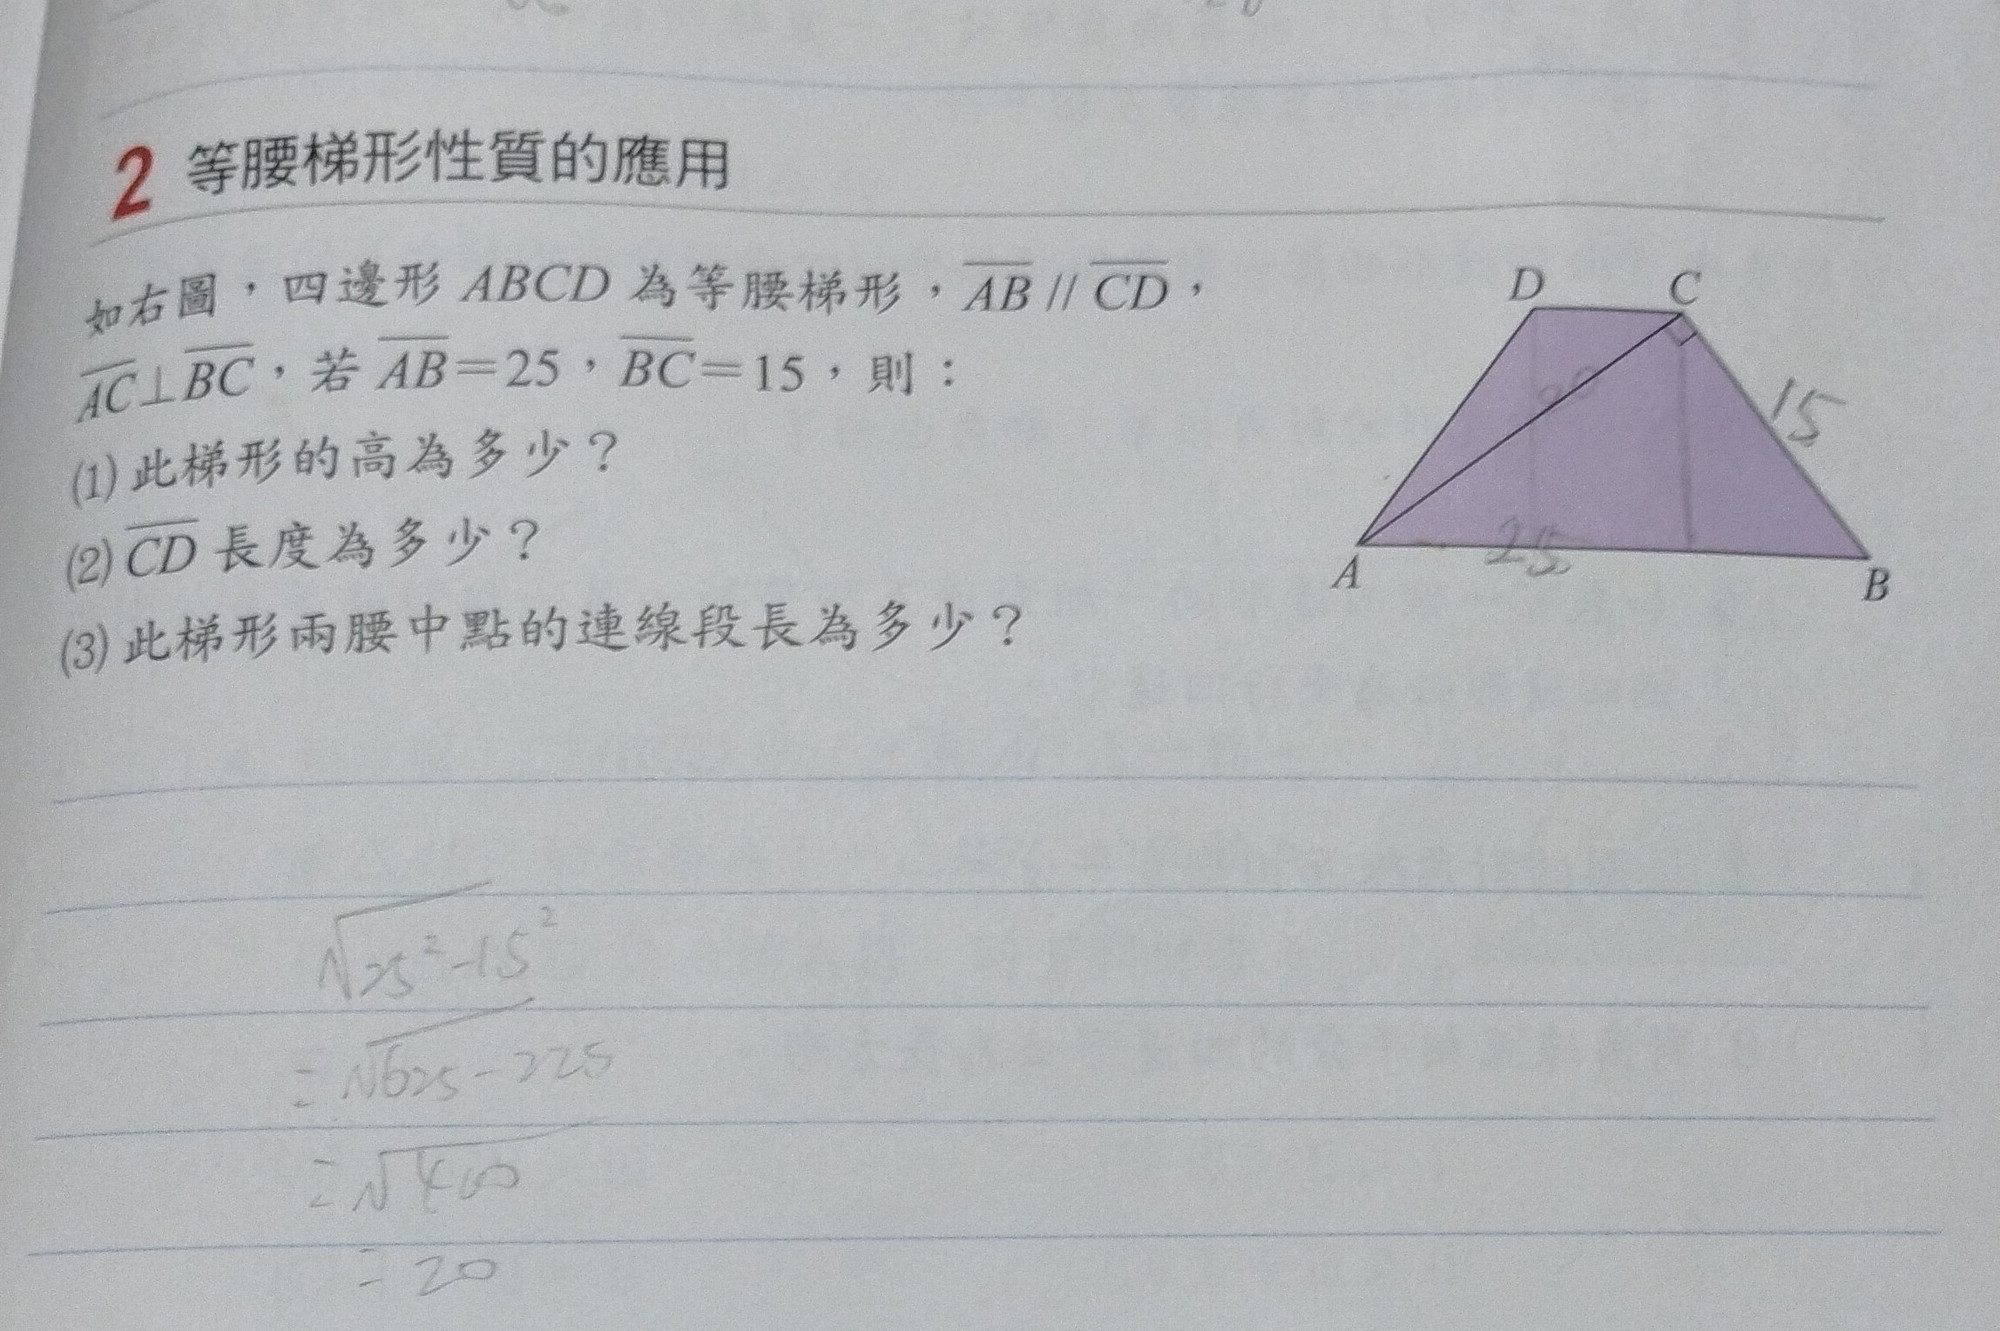 2 等腰梯形性質的應用
如右圖，四邊形 ABCD 為等腰梯形，AB // CD，
AC⊥BC，若 AB＝25，BC＝15，則：
(1) 此梯形的高為多少？
(2) CD 長度為多少？
(3) 此梯形兩腰中點的連線段長為多少？
D C
15
25
A B
√25²-15²
=√625-225
=√400
=20